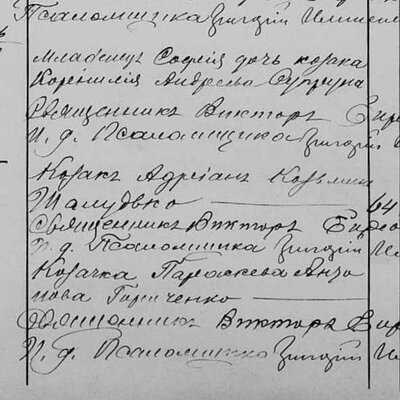 Псаломщика Григорій
Младенецъ Софія дочь козака
Корнилія Андреева Супруна
Священникъ Викторъ
И. д. Псаломщика Григорій
Козакъ Адріанъ Козьмин
64
Священникъ Викторъ
И. д. Псаломщика Григорій
Козачка Параскева Анто
нова Гориченко
Священникъ Викторъ
И. д. Псаломщика Григорій